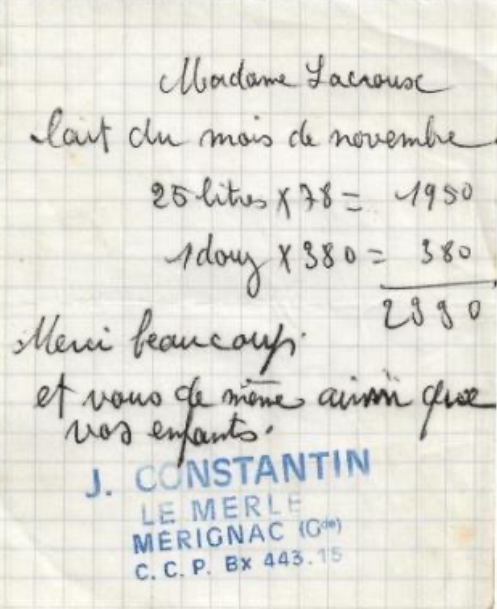 Madame Lacrouse
lait du mois de novembre
25 litres X 78 = 1950
1 douz X 380 = 380
2330
Merci beaucoup.
et vous de même ainsi que
vos enfants.
J. CONSTANTIN
LE MERLE
MÉRIGNAC (Gde)
C. C. P. Bx 443.15